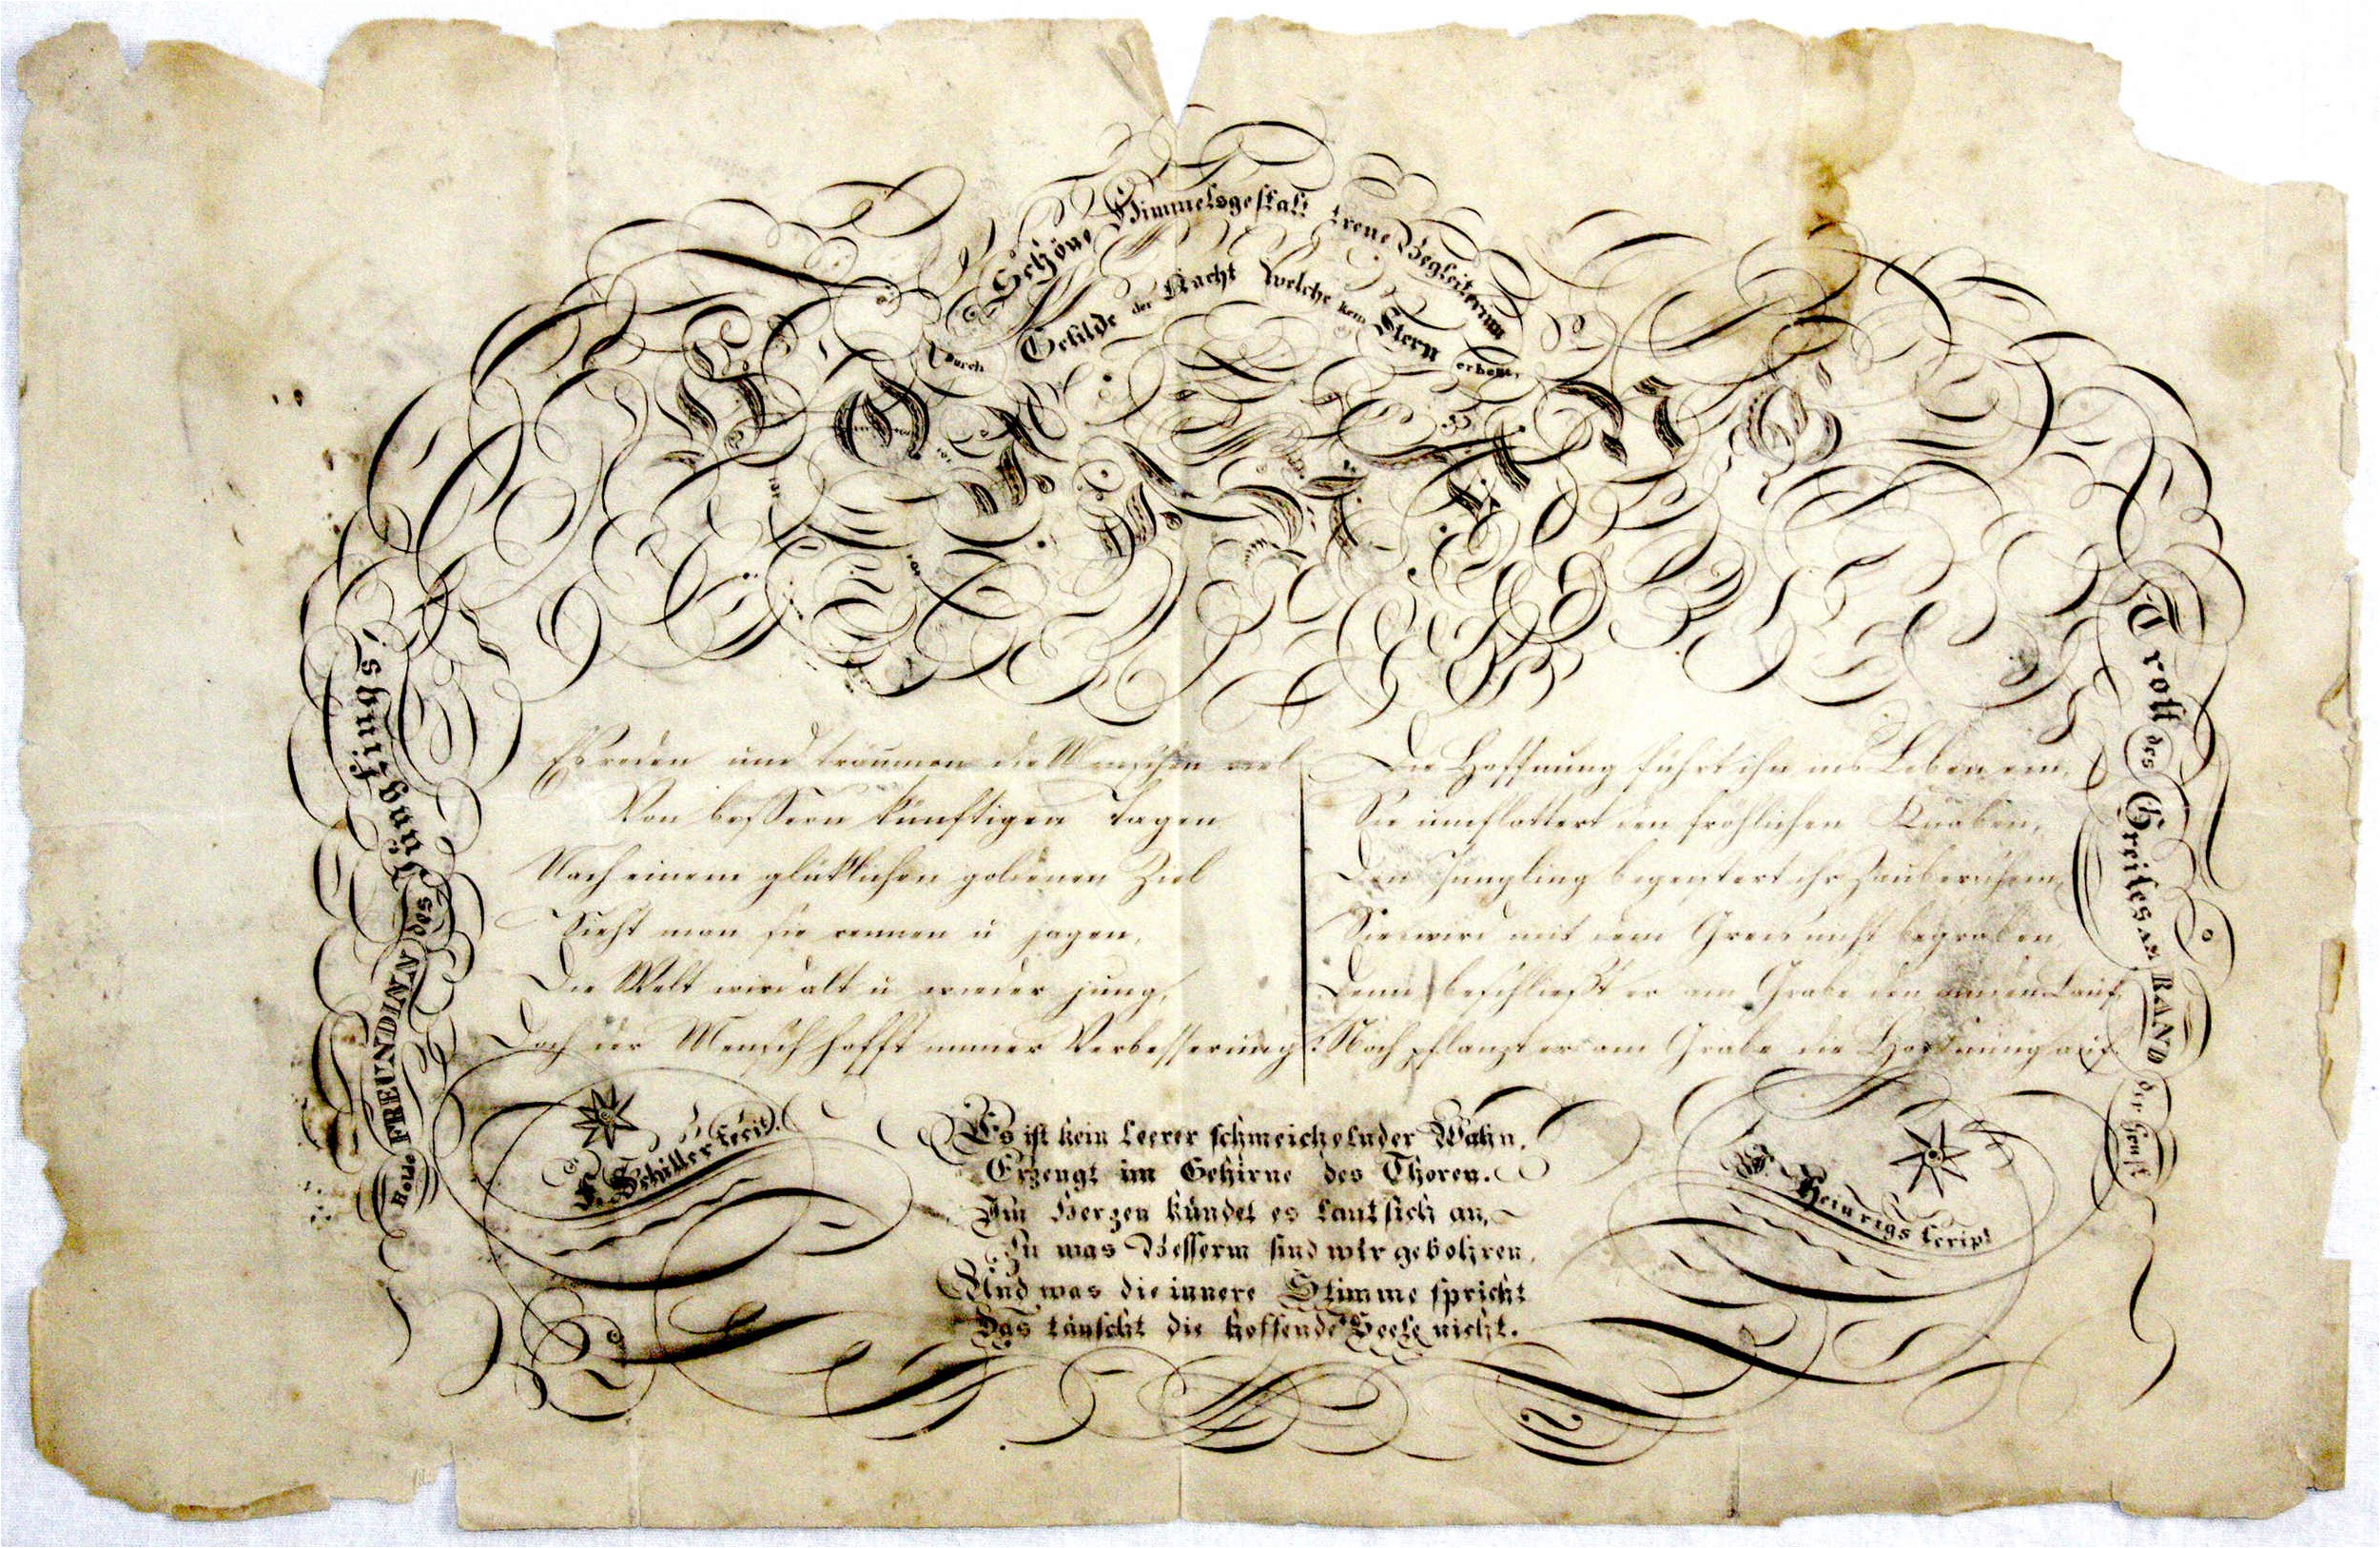 Schöne Himmelsgestalt treue Begleiterinn
Durch Gefilde der Nacht welche kein Stern erhellt,
HOFFNUNG
Holde FREUNDINN des Jünglings,
Trost des Greises am RAND der Gruft
Es reden und träumen die Menschen viel
Von bessern künftigen Tagen
Nach einem glüklichen goldenen Ziel
Sieht man sie rennen u jagen,
Die Welt wird alt u wieder jung,
Doch der Mensch hofft immer Verbesserung!
Die Hoffnung führt ihn ins Leben ein,
Sie umflattert den fröhlichen Knaben,
Den Jüngling begeistert ihr Zauberschein,
Sie wird mit dem Greis nicht begraben,
Denn beschließt er am Grabe den müden Lauf,
Noch pflanzt er am Grabe die Hoffnung auf.
F. Schiller fecit.
Es ist kein leerer schmeichelnder Wahn,
Erzeugt im Gehirne des Thoren.
Im Herzen kündet es laut sich an,
Zu was Besserm sind wir gebohren,
Und was die innere Stimme spricht
Das täuscht die hoffende Seele nicht.
Heinrigs script